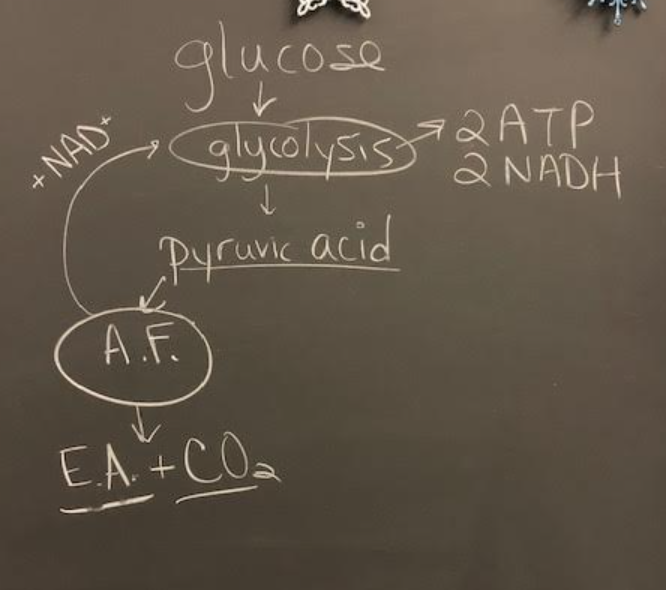 glucose
+NAD+
glycolysis
2 ATP
2 NADH
pyruvic acid
A.F.
E.A. + CO2